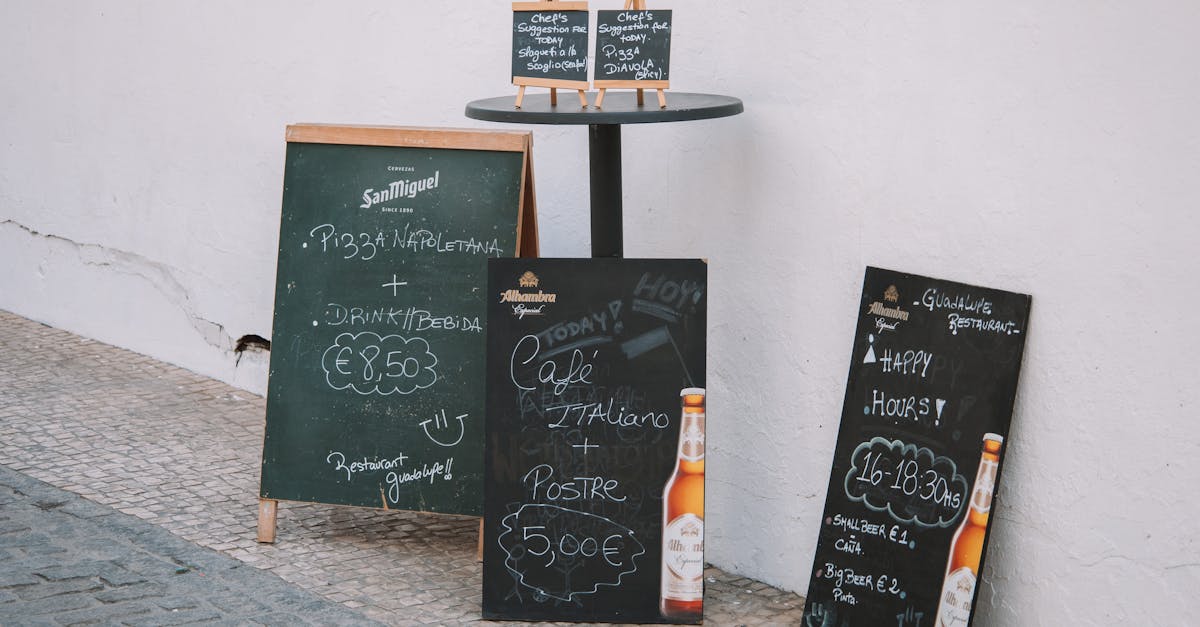 Chef's
Suggestion FOR
TODAY
Spaguetti a lo
scoglio(seafood)
Chef's
Suggestion for
TODAY.
Pizza
DIAVOLA
(spicy).
CERVEZAS
SanMiguel
SINCE 1890
.Pizza NAPOLETANA
+
.DRINK//BEBIDA
€8,50
Restaurant
guadalupe!!
Alhambra
Especial
HOY!
TODAY!
Café
ITAliano
+
POSTRE
5,00€
Alhambra
Especial
-GUADALUPE
RESTAURANT-
HAPPY
HOURS!
16-18:30HS
.SMALL BEER €1.
CAÑA.
.BIG BEER €2.
Pinta.